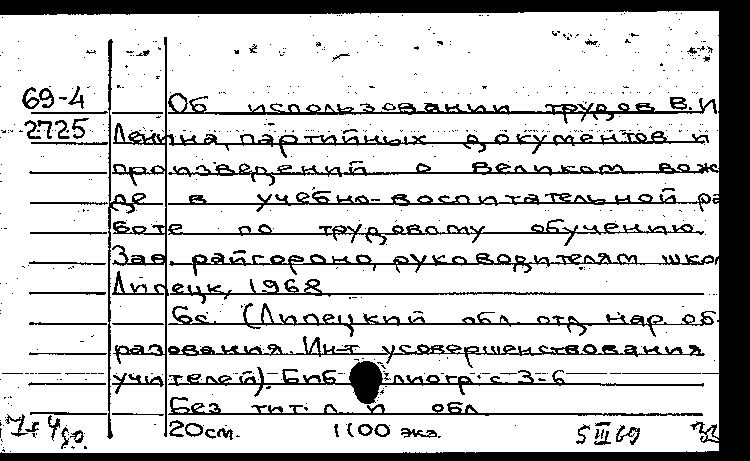 69-4 Об использовании трудов В.И
2725 Ленина, партийных документов и
произведений о великом вож
де в учебно-воспитательной ра
боте по трудовому обучению.
Зав. райгороно, руководителям шко
Липецк, 1968
6с. (Липецкий обл. отд. нар. об
разования. Ин-т усовершенствования
учителей). Библиогр: с. 3-6
Без тит. л. и обл.
20см. 1100 экз. 5 III 69